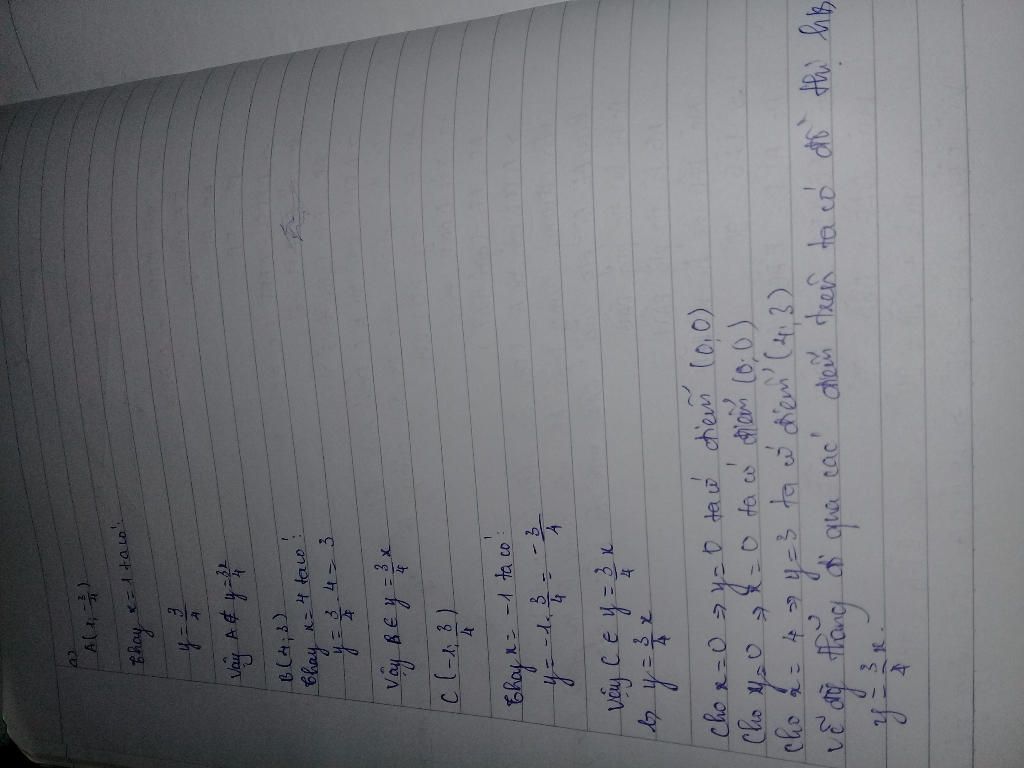 a)
A(1, -3/4)
Thay x = 1 ta có:
y = 3/4
Vậy A ∉ y = 3x/4
B(4, 3)
Thay x = 4 ta có:
y = 3/4 . 4 = 3
Vậy B ∈ y = 3/4 x
C(-1, -3/4)
Thay x = -1 ta có:
y = -1 . 3/4 = -3/4
Vậy C ∈ y = 3/4 x
b, y = 3/4 x
Cho x = 0 => y = 0 ta có điểm (0, 0)
Cho y = 0 => x = 0 ta có điểm (0, 0)
Cho x = 4 => y = 3 ta có điểm (4, 3)
Vẽ đg thẳng đi qua các điểm trên ta có đồ thị
y = 3/4 x.